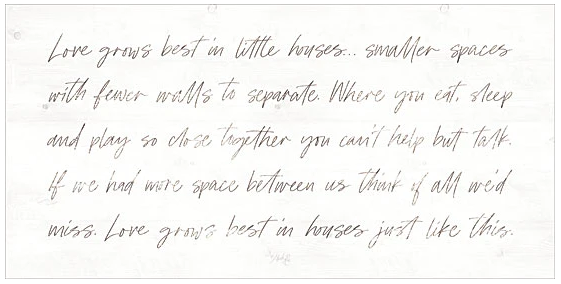 Love grows best in little houses... smaller spaces
with fewer walls to separate. Where you eat, sleep
and play so close together you can't help but talk.
If we had more space between us think if all we'd
miss. Love grows best in houses just like this.